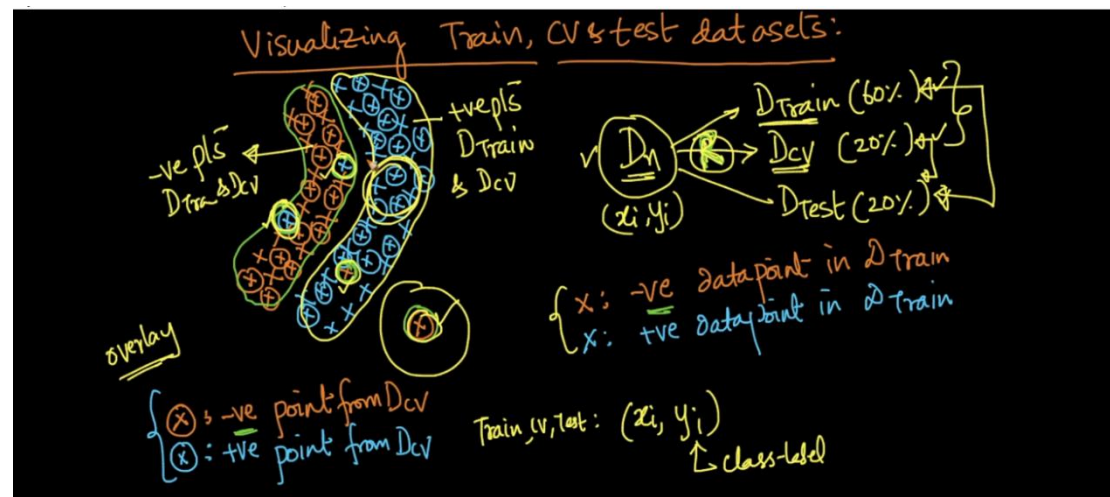 Visualizing Train, CV & test datasets:
-ve pts
DTra & DCV
+ve pts
DTrain
& DCV
Dn
(xi, yi)
R
DTrain (60%)
DCV (20%)
DTest (20%)
x: -ve datapoint in DTrain
x: +ve datapoint in DTrain
overlay
x: -ve point from DCV
x: +ve point from DCV
Train, CV, Test: (xi, yi)
class-label